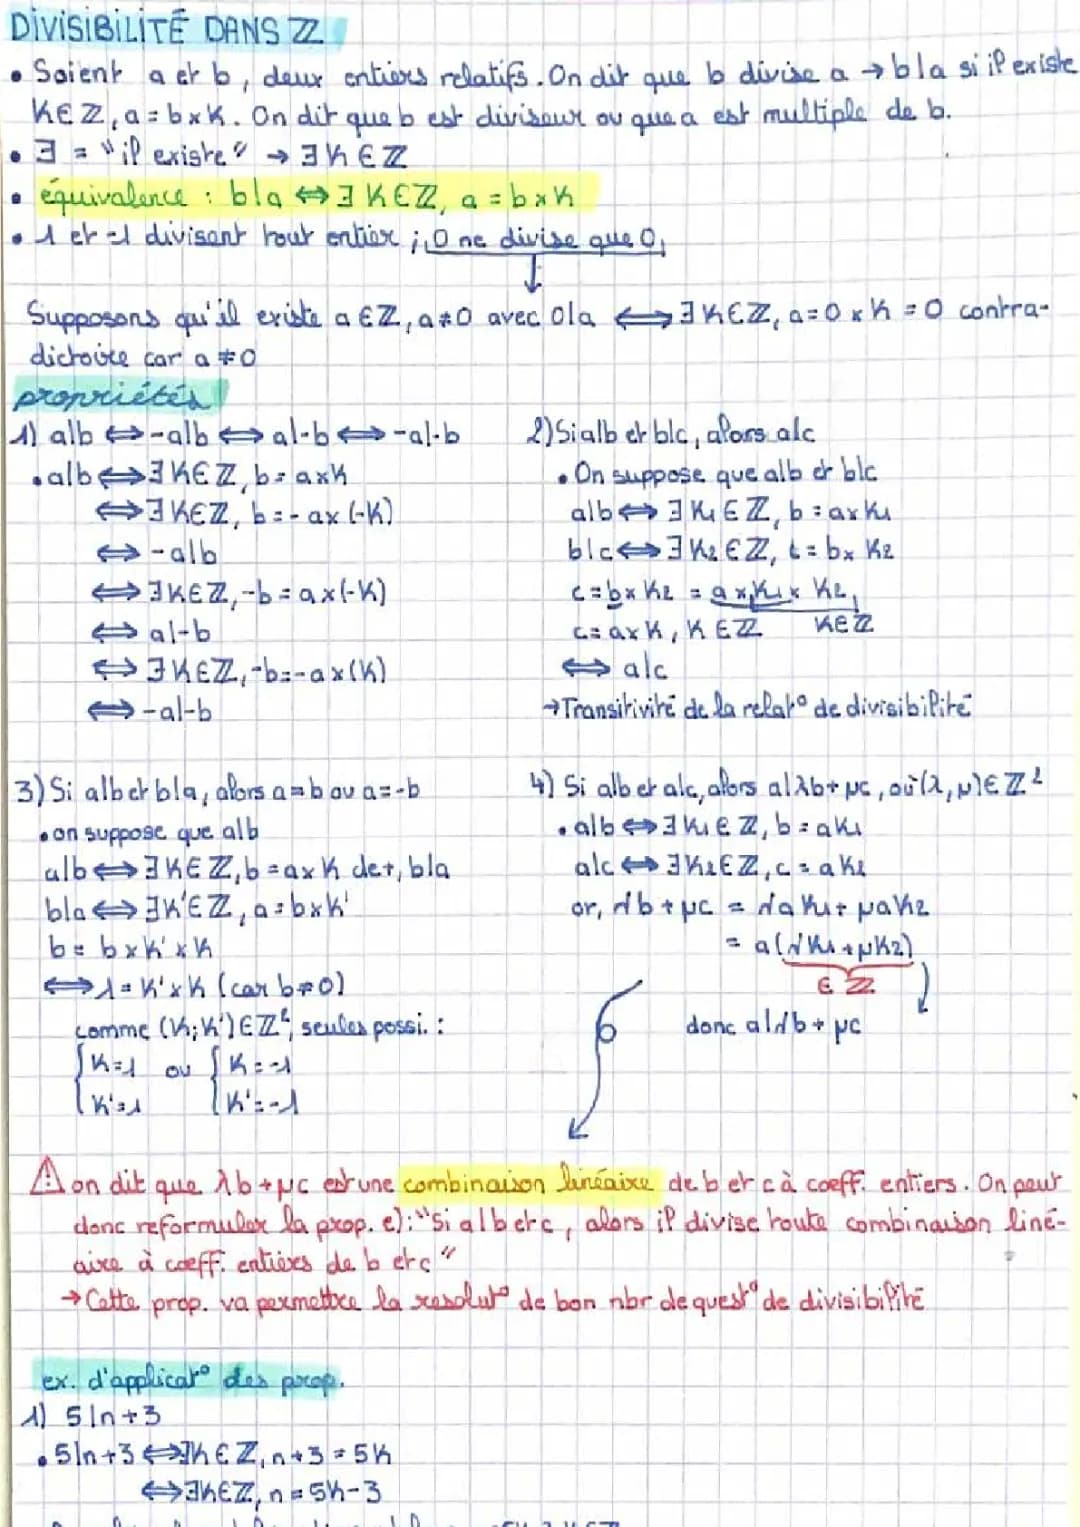 DIVISIBILITÉ DANS ℤ
• Soient a et b, deux entiers relatifs. On dit que b divise a → b|a si il existe
K∈ℤ, a=b×K. On dit que b est diviseur ou que a est multiple de b.
• ∃ = "il existe" → ∃K∈ℤ
• équivalence : b|a ⟺ ∃ K∈ℤ, a = b×K
• 1 et -1 divisent tout entier ; 0 ne divise que 0,
↓
Supposons qu'il existe a∈ℤ, a≠0 avec 0|a ⟺ ∃K∈ℤ, a=0×K=0 contra-
dictoire car a≠0
propriétés
1) a|b ⟺ -a|b ⟺ a|-b ⟺ -a|-b
• a|b ⟺ ∃K∈ℤ, b=a×K
⟺ ∃K∈ℤ, b=-a×(-K)
⟺ -a|b
⟺ ∃K∈ℤ, -b=a×(-K)
⟺ a|-b
⟺ ∃K∈ℤ, -b=-a×(K)
⟺ -a|-b
2) Si a|b et b|c, alors a|c
• On suppose que a|b et b|c
a|b ⟺ ∃ K₁∈ℤ, b=a×K₁
b|c ⟺ ∃ K₂∈ℤ, c=b×K₂
c=b×K₂ = a×K₁×K₂,
c=a×K, K∈ℤ K∈ℤ
⟺ a|c
→ Transitivité de la relat° de divisibilité
3) Si a|b et b|a, alors a=b ou a=-b
• on suppose que a|b
a|b ⟺ ∃K∈ℤ, b=a×K de+, b|a
b|a ⟺ ∃K'∈ℤ, a=b×K'
b=b×K'×K
⟺ 1=K'×K (car b≠0)
comme (K;K')∈ℤ², seules possi. :
{K=1 ou {K=-1
{K'=1 {K'=-1
4) Si a|b et a|c, alors a|λb+μc, où (λ,μ)∈ℤ²
• a|b ⟺ ∃K₁∈ℤ, b=aK₁
a|c ⟺ ∃K₂∈ℤ, c=aK₂
or, λb+μc = λaK₁+μaK₂
= a(λK₁+μK₂)
∈ ℤ
donc a|λb+μc
⚠ on dit que λb+μc est une combinaison linéaire de b et c à coeff. entiers. On peut
donc reformuler la prop. e): "Si a|b et c, alors il divise toute combinaison liné-
aire à coeff. entières de b et c"
→ Cette prop. va permettre la resolut° de bon nbr de quest° de divisibilité
ex. d'applicat° des prop.
1) 5|n+3
• 5|n+3 ⟺ ∃K∈ℤ, n+3=5K
⟺ ∃K∈ℤ, n=5K-3